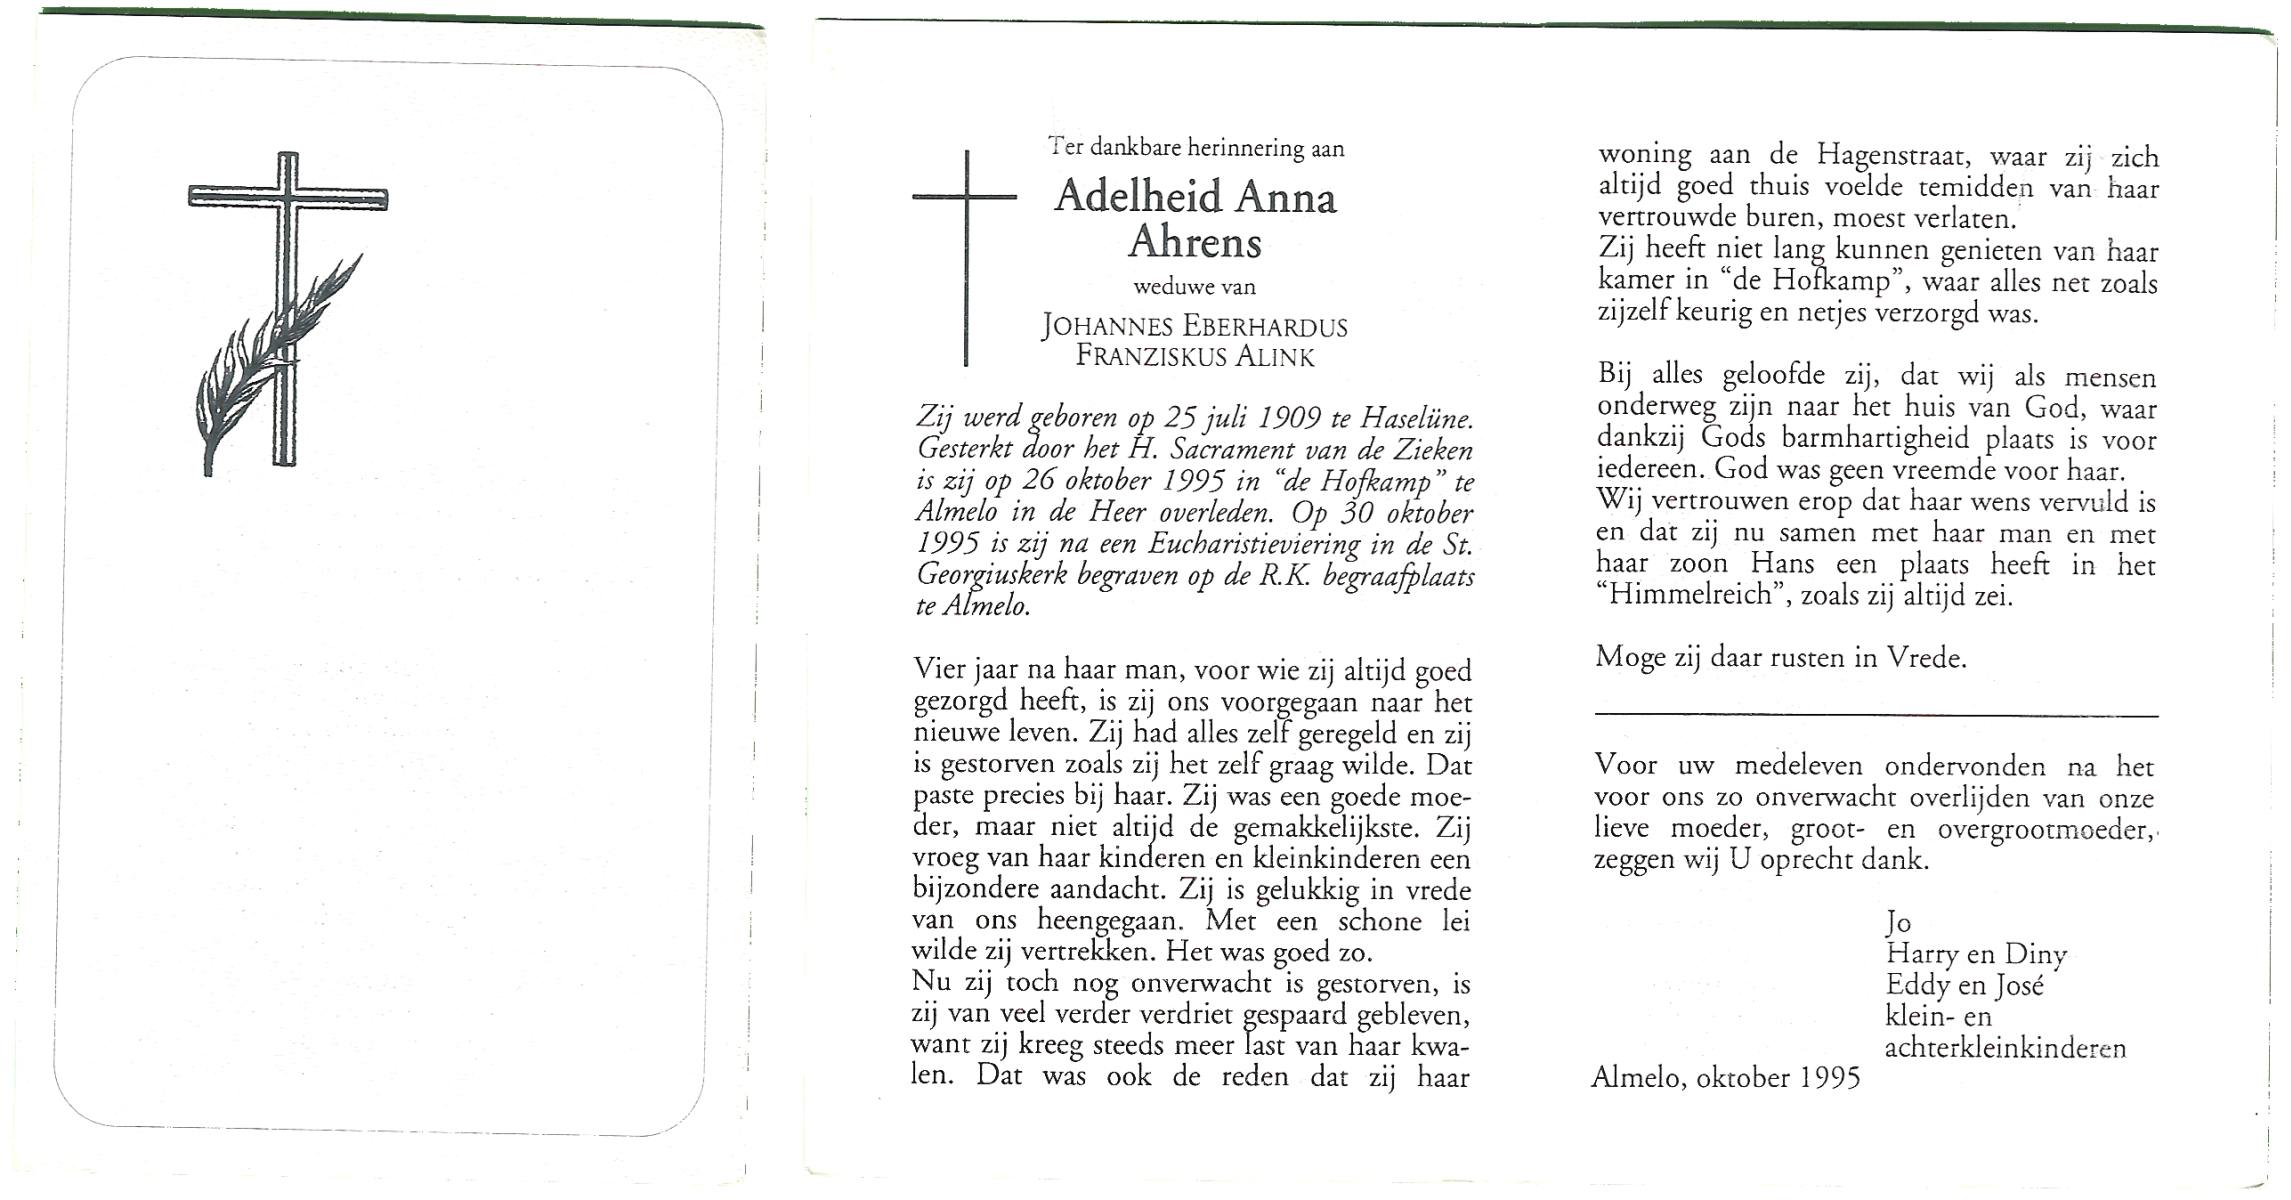 Ter dankbare herinnering aan
Adelheid Anna
Ahrens
weduwe van
JOHANNES EBERHARDUS
FRANZISKUS ALINK
Zij werd geboren op 25 juli 1909 te Haselüne.
Gesterkt door het H. Sacrament van de Zieken
is zij op 26 oktober 1995 in “de Hofkamp” te
Almelo in de Heer overleden. Op 30 oktober
1995 is zij na een Eucharistieviering in de St.
Georgiuskerk begraven op de R.K. begraafplaats
te Almelo.
Vier jaar na haar man, voor wie zij altijd goed
gezorgd heeft, is zij ons voorgegaan naar het
nieuwe leven. Zij had alles zelf geregeld en zij
is gestorven zoals zij het zelf graag wilde. Dat
paste precies bij haar. Zij was een goede moe-
der, maar niet altijd de gemakkelijkste. Zij
vroeg van haar kinderen en kleinkinderen een
bijzondere aandacht. Zij is gelukkig in vrede
van ons heengegaan. Met een schone lei
wilde zij vertrekken. Het was goed zo.
Nu zij toch nog onverwacht is gestorven, is
zij van veel verder verdriet gespaard gebleven,
want zij kreeg steeds meer last van haar kwa-
len. Dat was ook de reden dat zij haar
woning aan de Hagenstraat, waar zij zich
altijd goed thuis voelde temidden van haar
vertrouwde buren, moest verlaten.
Zij heeft niet lang kunnen genieten van haar
kamer in “de Hofkamp”, waar alles net zoals
zijzelf keurig en netjes verzorgd was.
Bij alles geloofde zij, dat wij als mensen
onderweg zijn naar het huis van God, waar
dankzij Gods barmhartigheid plaats is voor
iedereen. God was geen vreemde voor haar.
Wij vertrouwen erop dat haar wens vervuld is
en dat zij nu samen met haar man en met
haar zoon Hans een plaats heeft in het
“Himmelreich”, zoals zij altijd zei.
Moge zij daar rusten in Vrede.
Voor uw medeleven ondervonden na het
voor ons zo onverwacht overlijden van onze
lieve moeder, groot- en overgrootmoeder,
zeggen wij U oprecht dank.
Jo
Harry en Diny
Eddy en José
klein- en
achterkleinkinderen
Almelo, oktober 1995